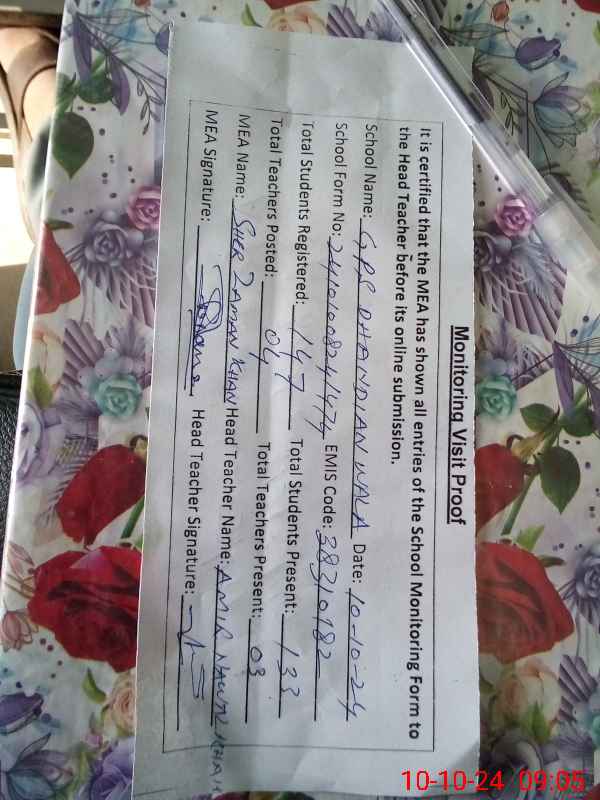 Monitoring Visit Proof
It is certified that the MEA has shown all entries of the School Monitoring Form to
the Head Teacher before its online submission.
School Name: GPS DHANDIAN WALA Date: 10-10-24
School Form No: EMIS Code: 38310182
Total Students Registered: 147 Total Students Present: 133
Total Teachers Posted: 04 Total Teachers Present: 03
MEA Name: SHER ZAMAN KHAN Head Teacher Name: AMIR NAWAZ KHAN
MEA Signature: Head Teacher Signature:
10-10-24 09:05